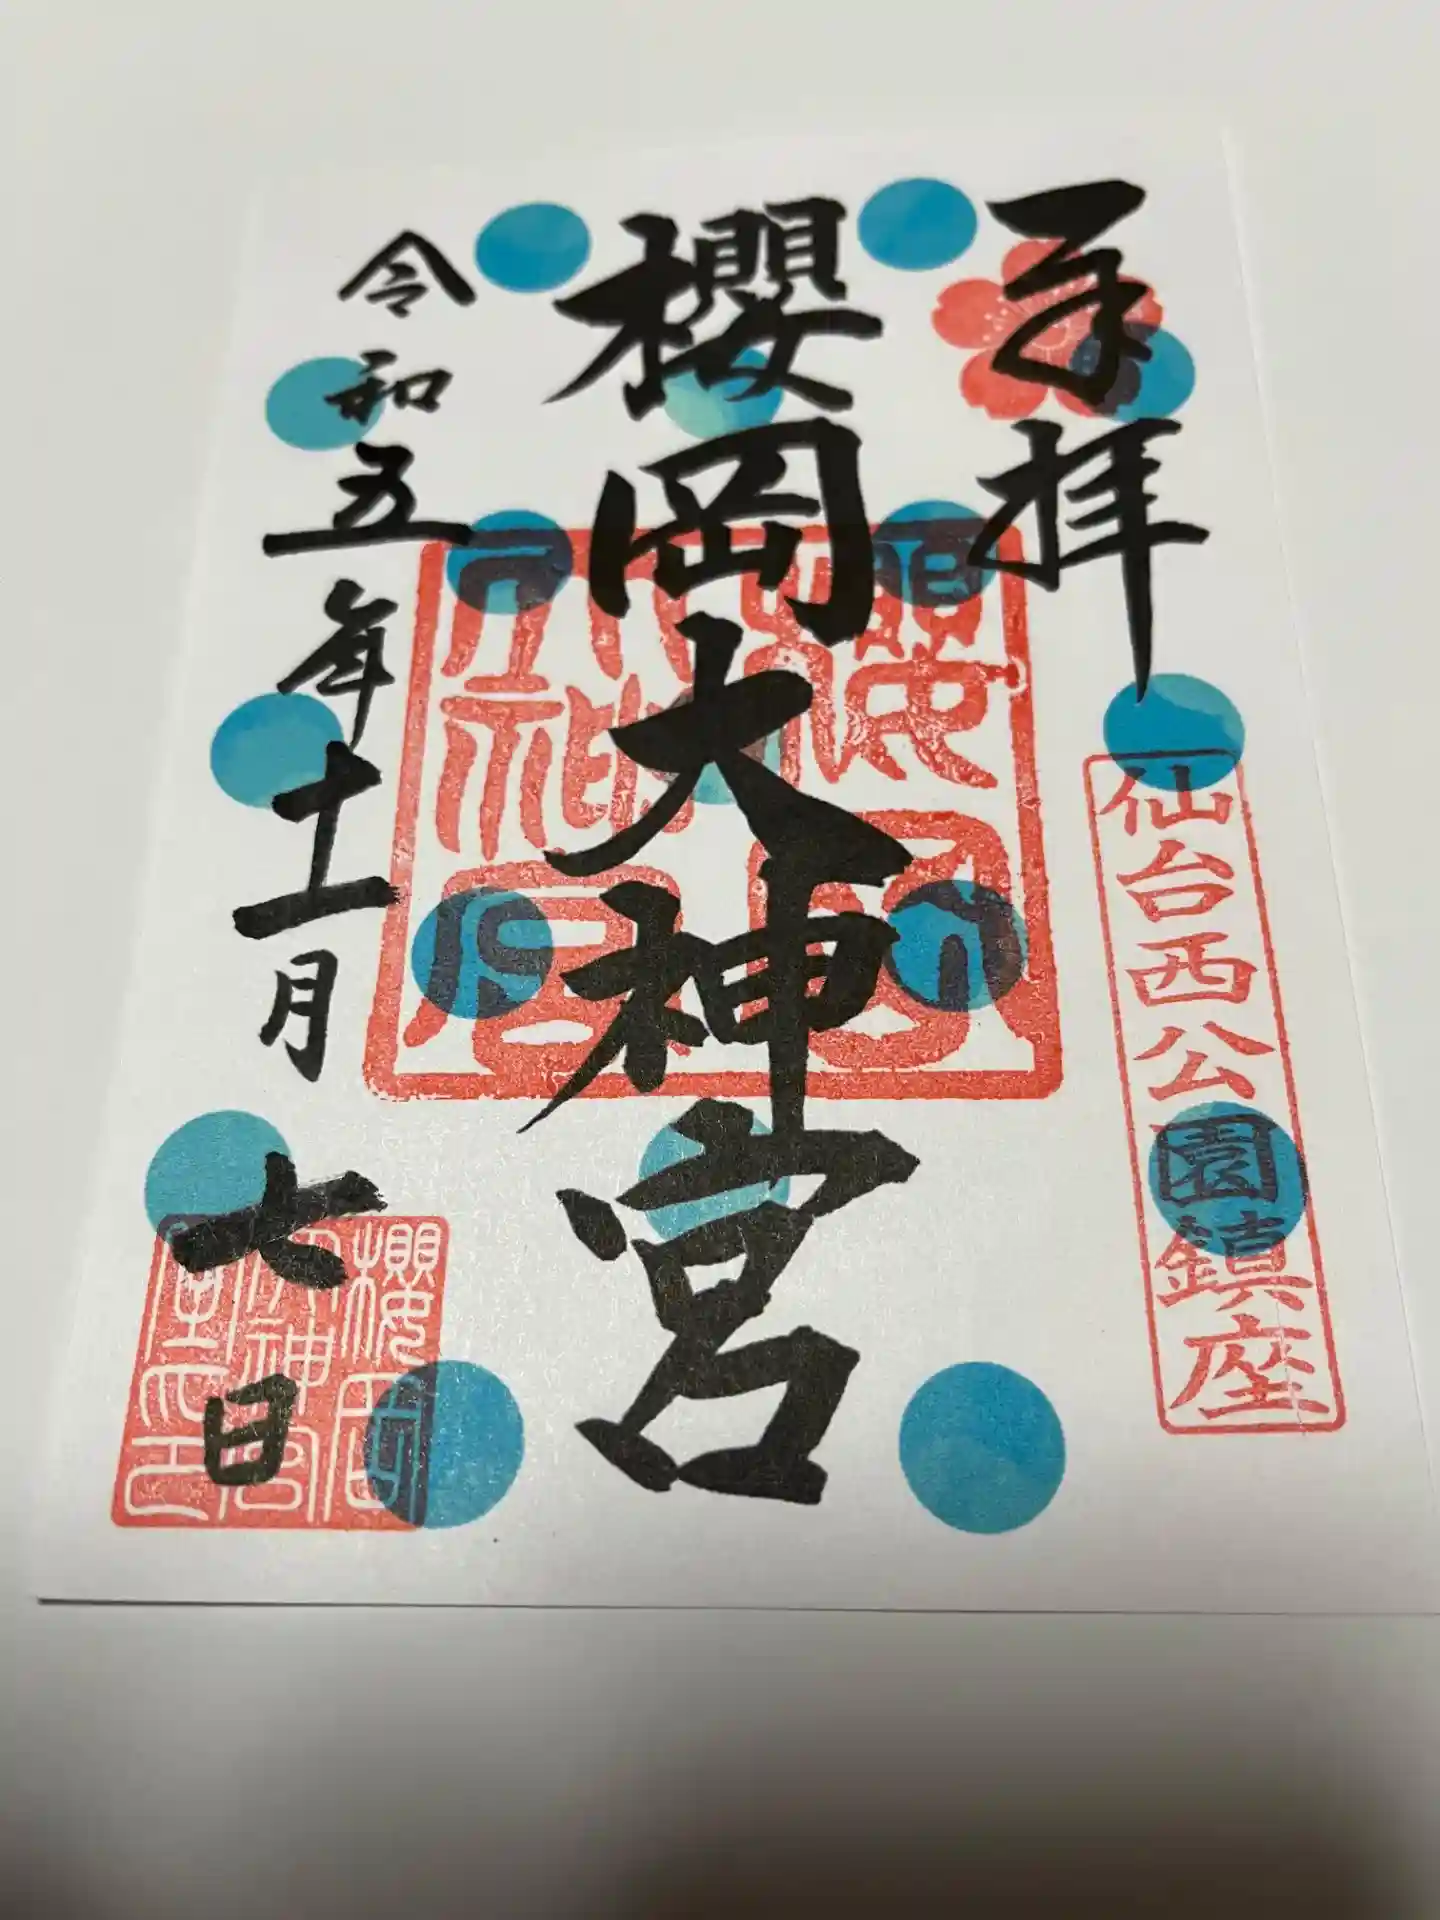 奉拝
仙台西公園鎮座
櫻岡大神宮
櫻岡
大神宮
令和五年十一月六日
櫻岡
大神宮